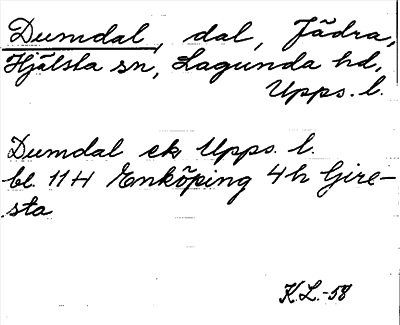 Dumdal, dal, Jädra,
Hjälsta sn, Lagunda hd,
Upps. l.
Dumdal ek Upps. l.
bl. 11H Enköping 4h Gire-
sta
K.L.-58